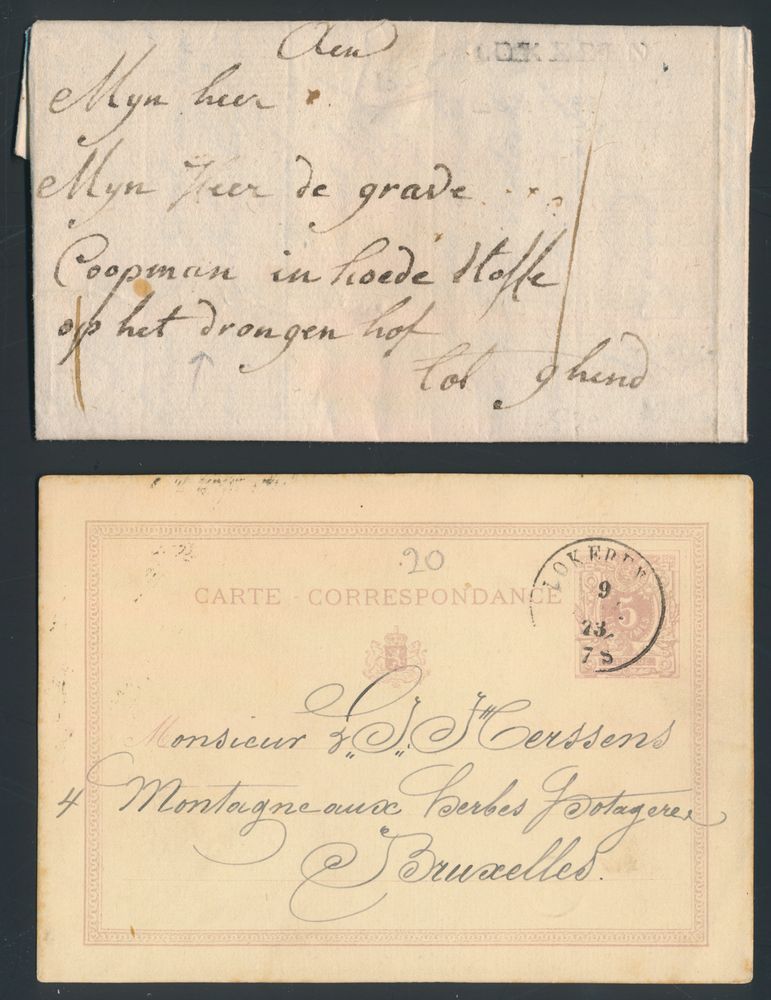 Aen
Mÿn heer
Mÿn Heer de grave
Coopman in hoede Stoffe
op het drongen hof
tot ghend
20
CARTE - CORRESPONDANCE
LOKEREN
9
73
7 S
5
Monsieur L. J. Herssens
4 Montagne aux herbes Potageres
Bruxelles.